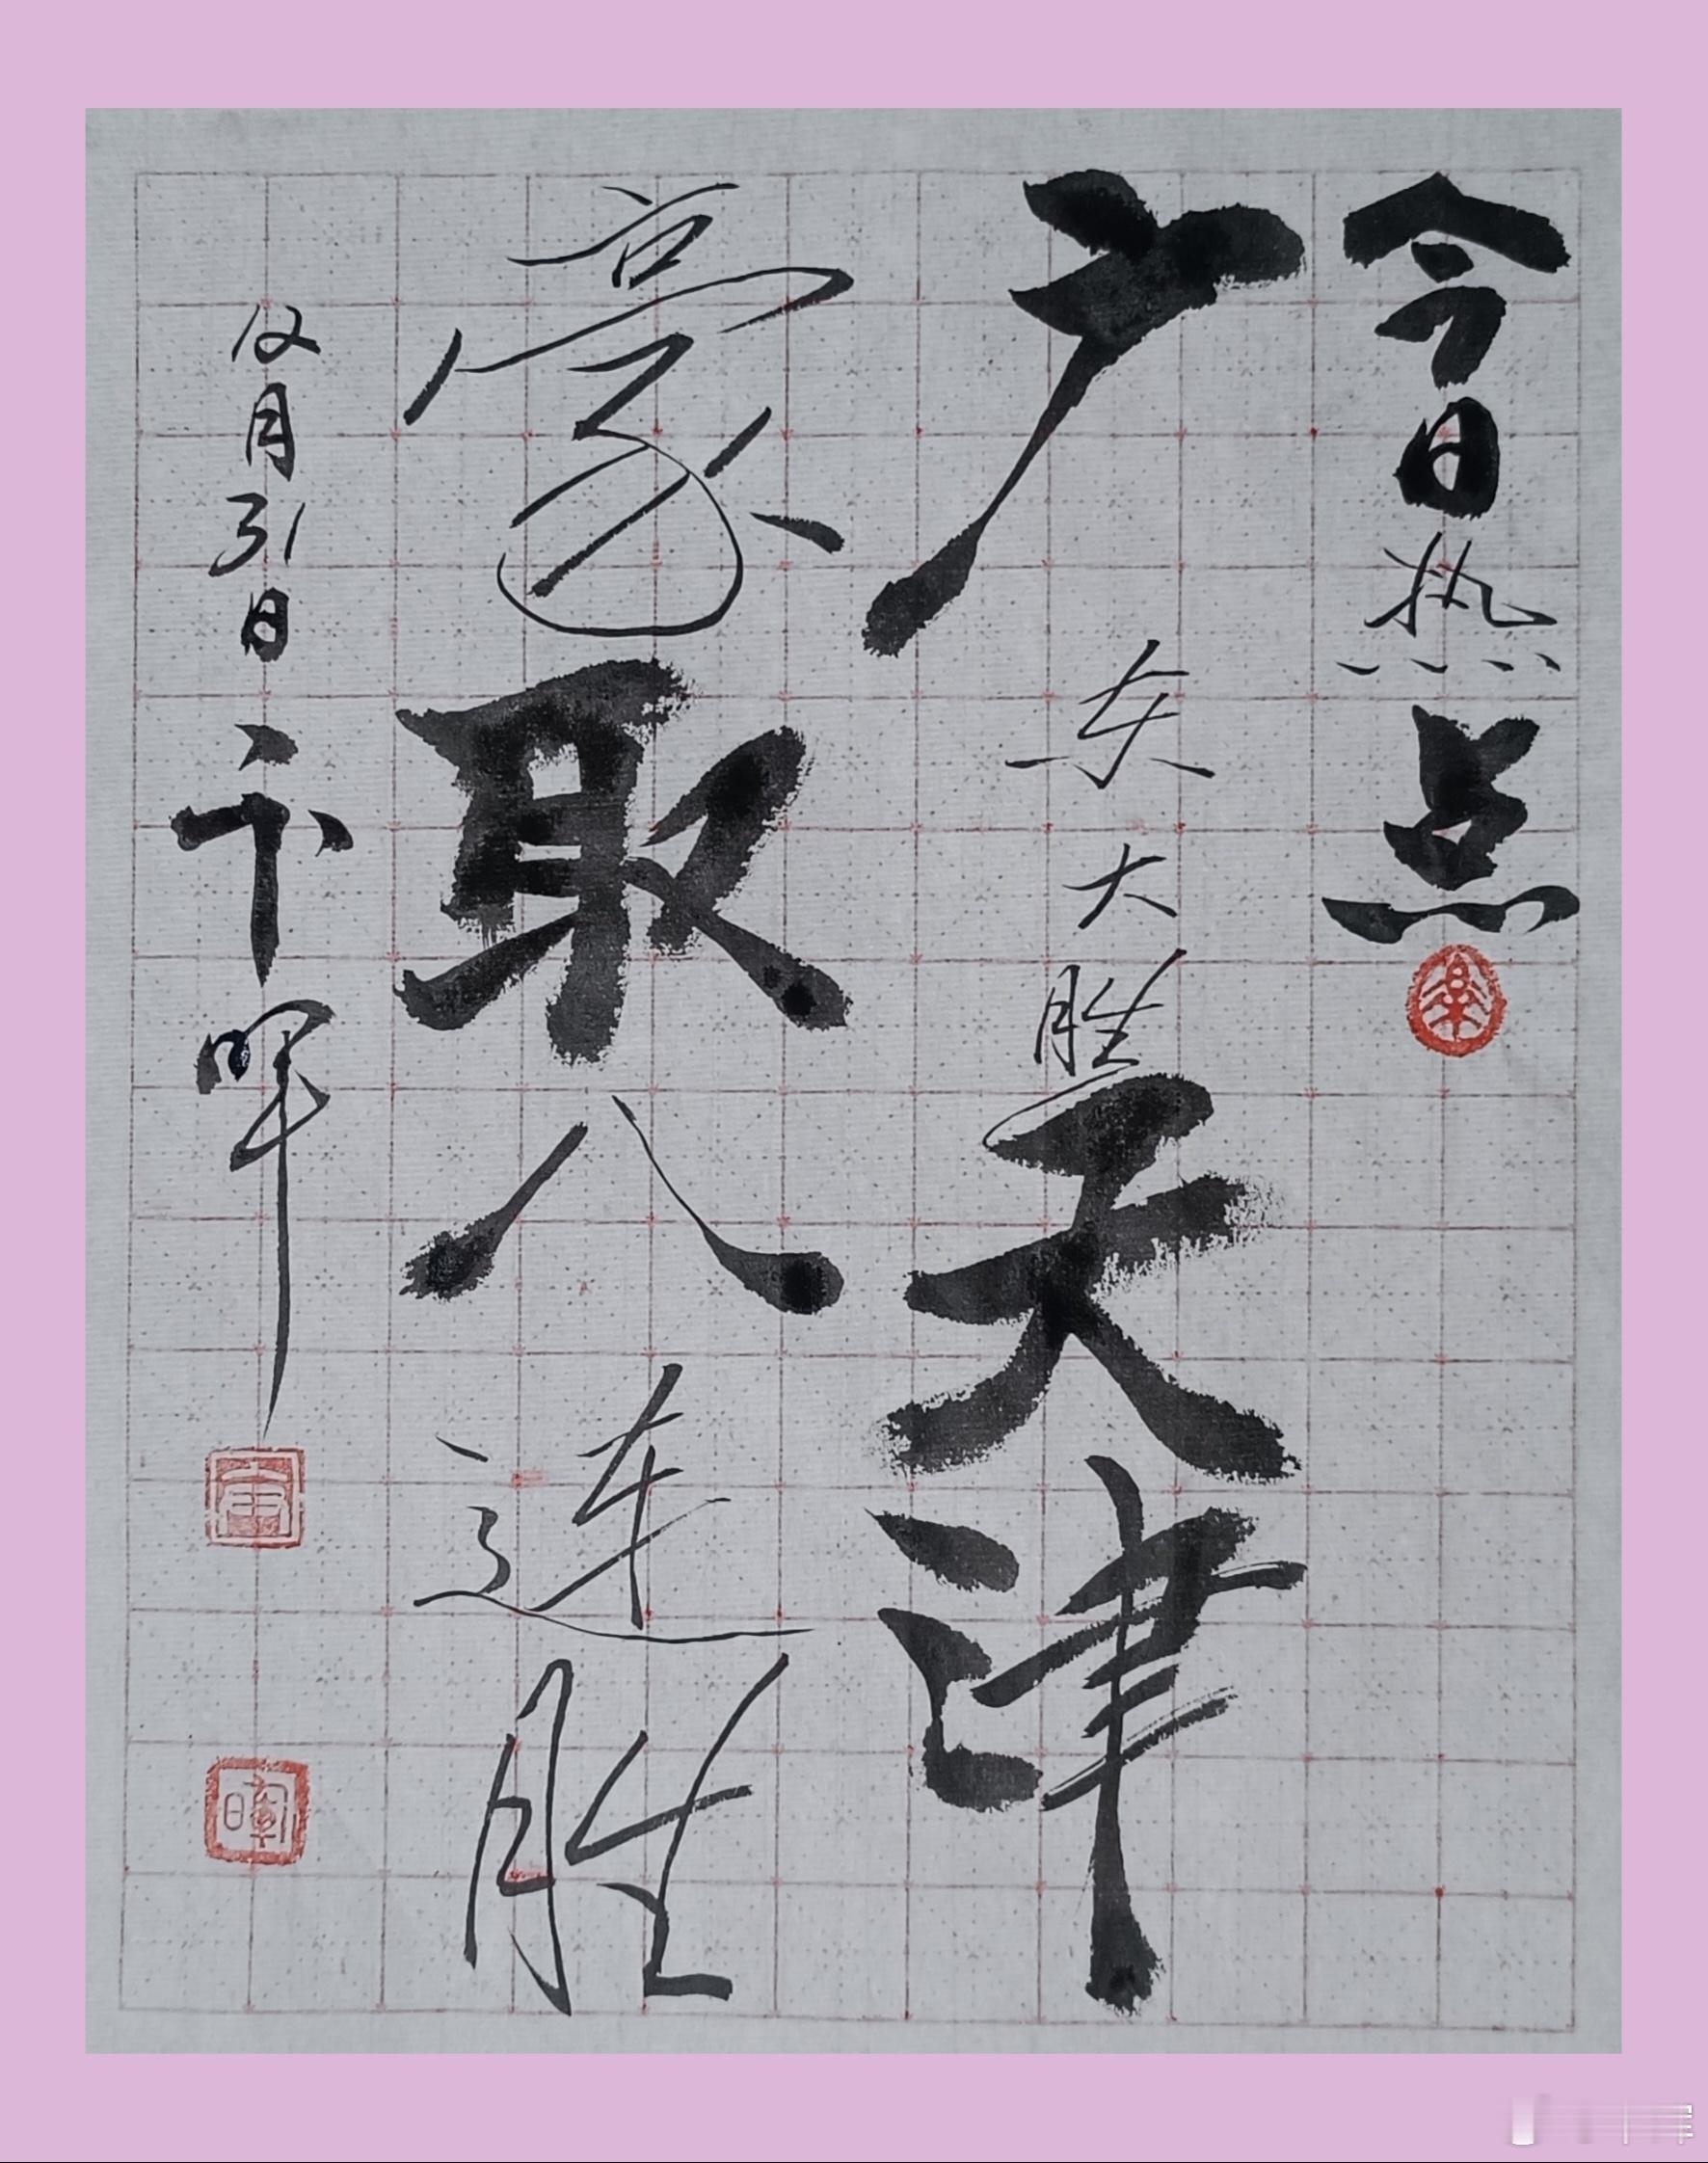 今日热点
广东大胜天津
豪取八连胜
12月31日卞晖
晖